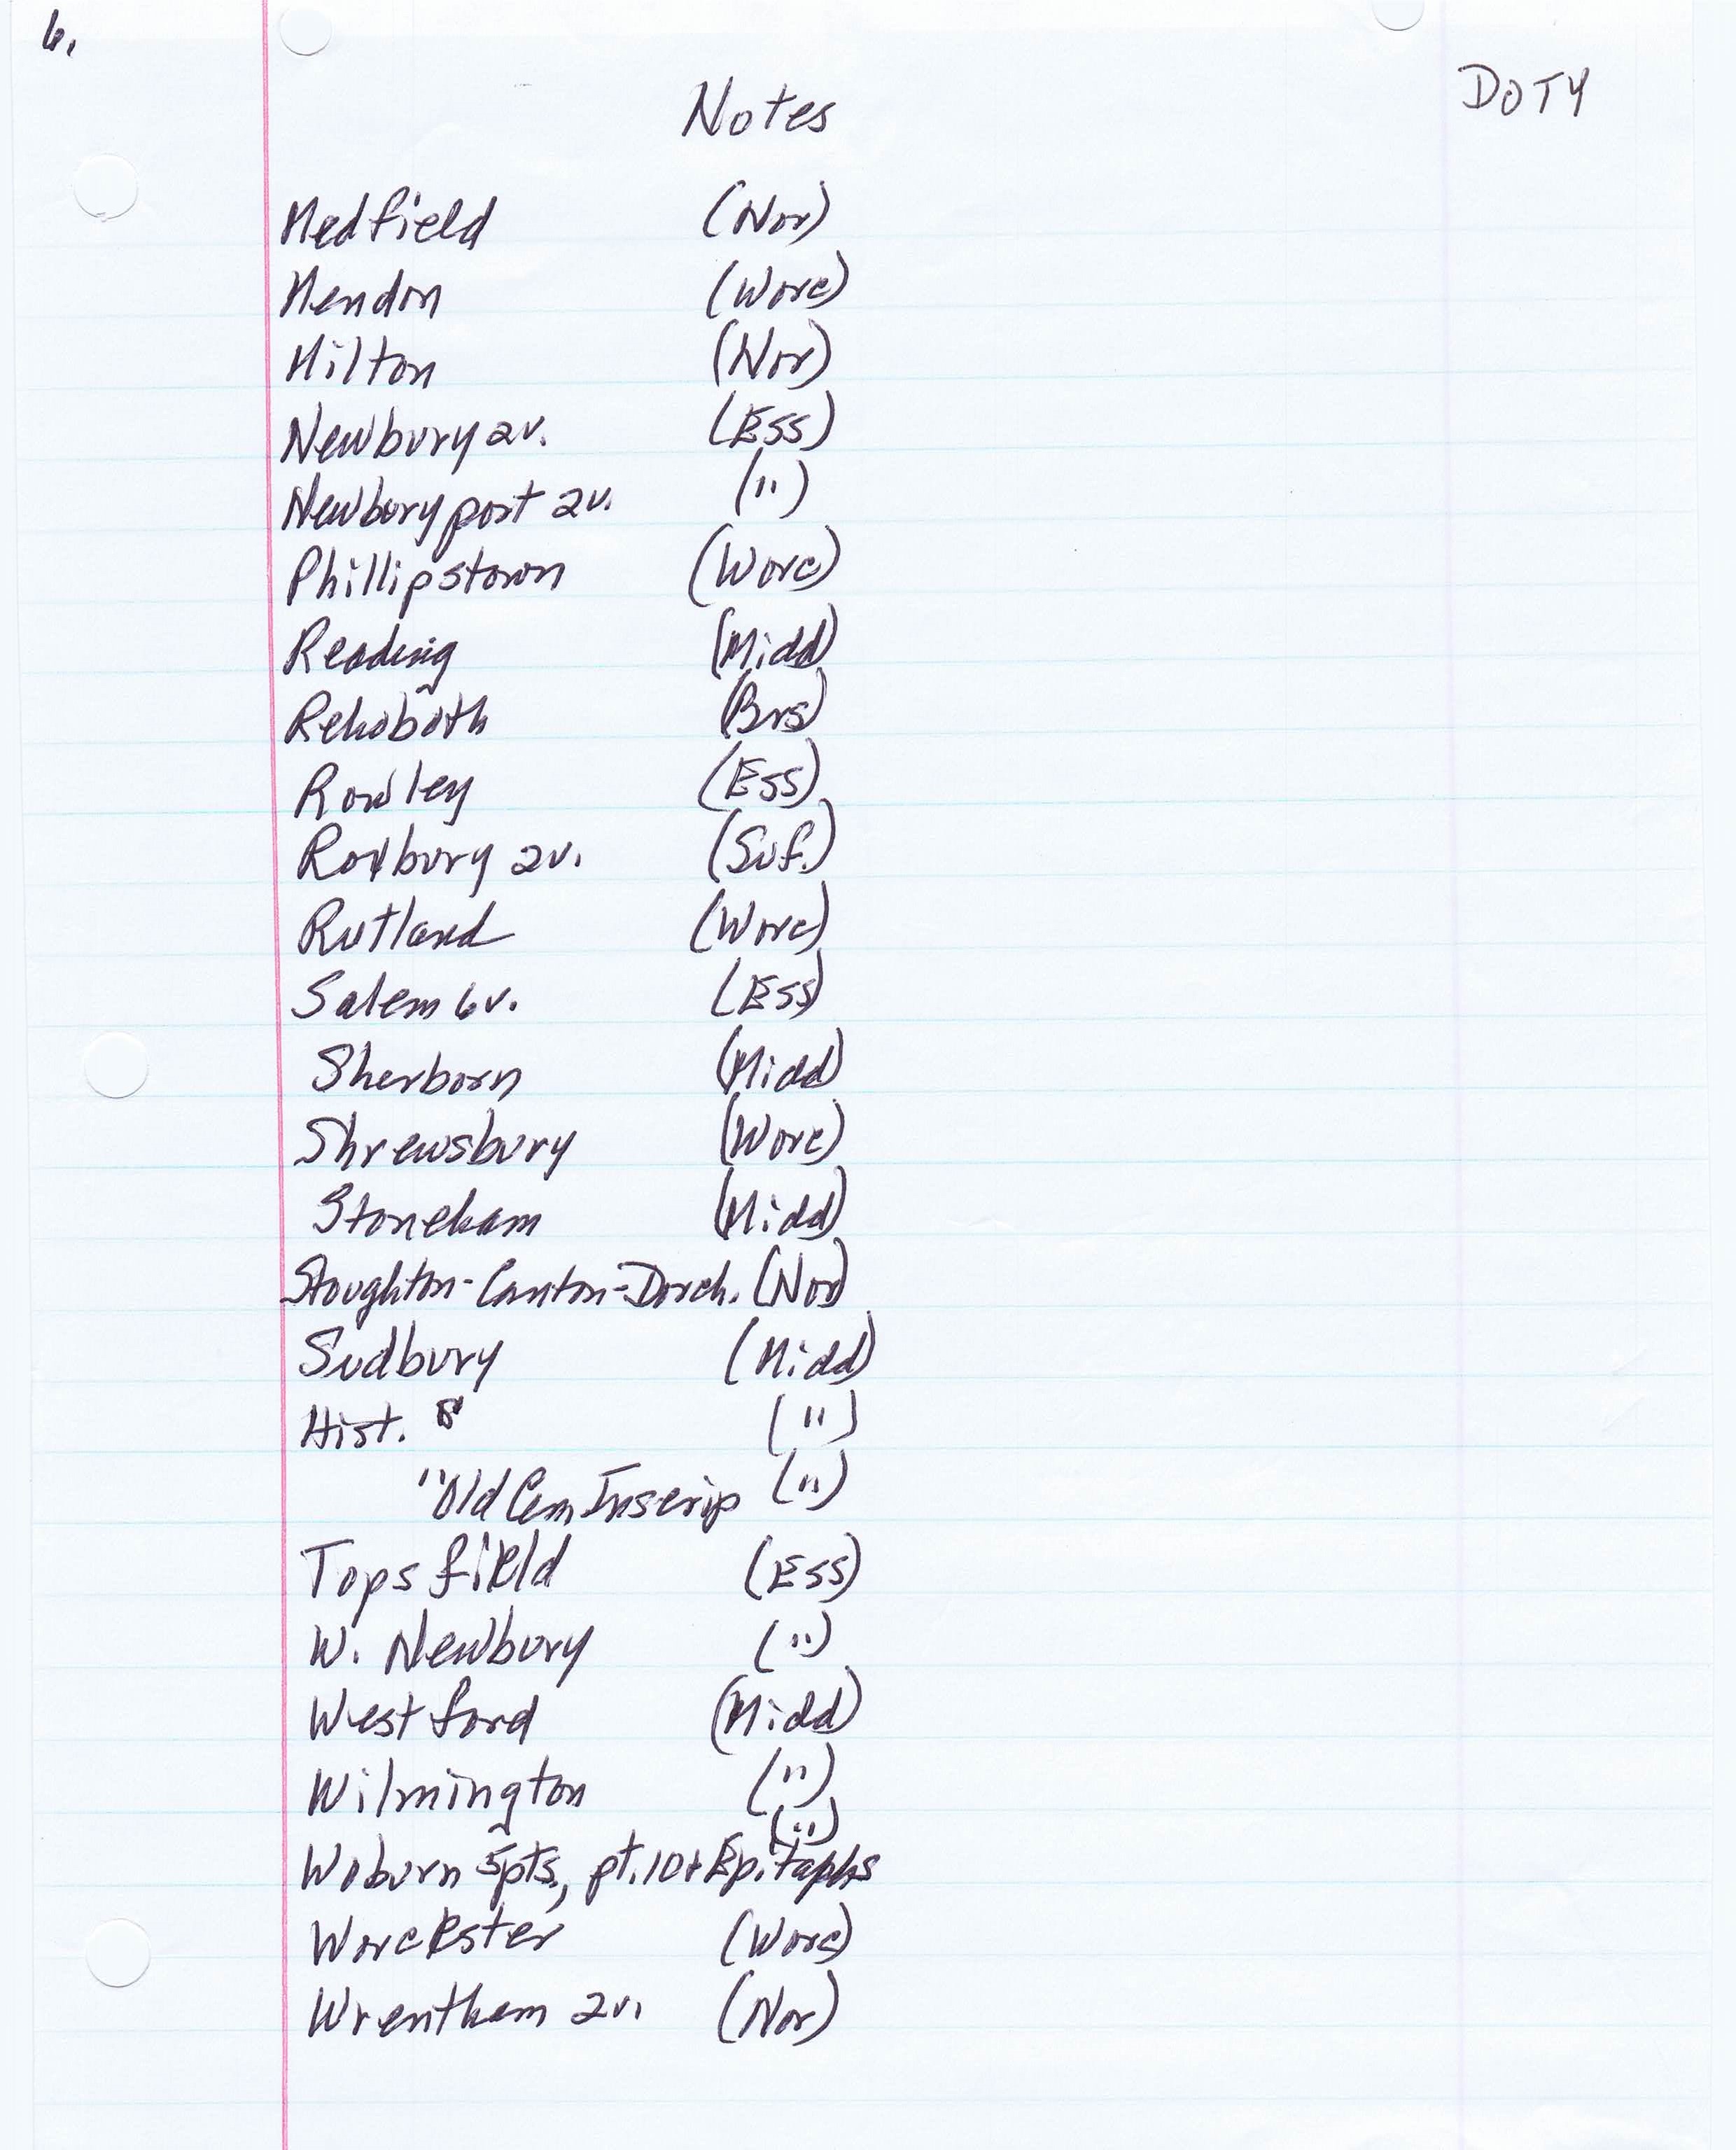 6.
Notes
DOTY
Medfield (Nor)
Mendon (Worc)
Milton (Nor)
Newbury 2v. (Ess)
Newburyport 2v. (")
Phillipstown (Worc)
Reading (Midd)
Rehoboth (Brs)
Rowley (Ess)
Roxbury 2v. (Suf.)
Rutland (Worc)
Salem 6v. (Ess)
Sherborn (Midd)
Shrewsbury (Worc)
Stoneham (Midd)
Stoughton-Canton-Dorch. (Nor)
Sudbury (Midd)
Hist. (")
"Old Cem Inscrip (")
Topsfield (Ess)
W. Newbury (")
Westford (Midd)
Wilmington (")
(")
Woburn 5pts., pt.10+Epitaphs
Worcester (Worc)
Wrentham 2v. (Nor)